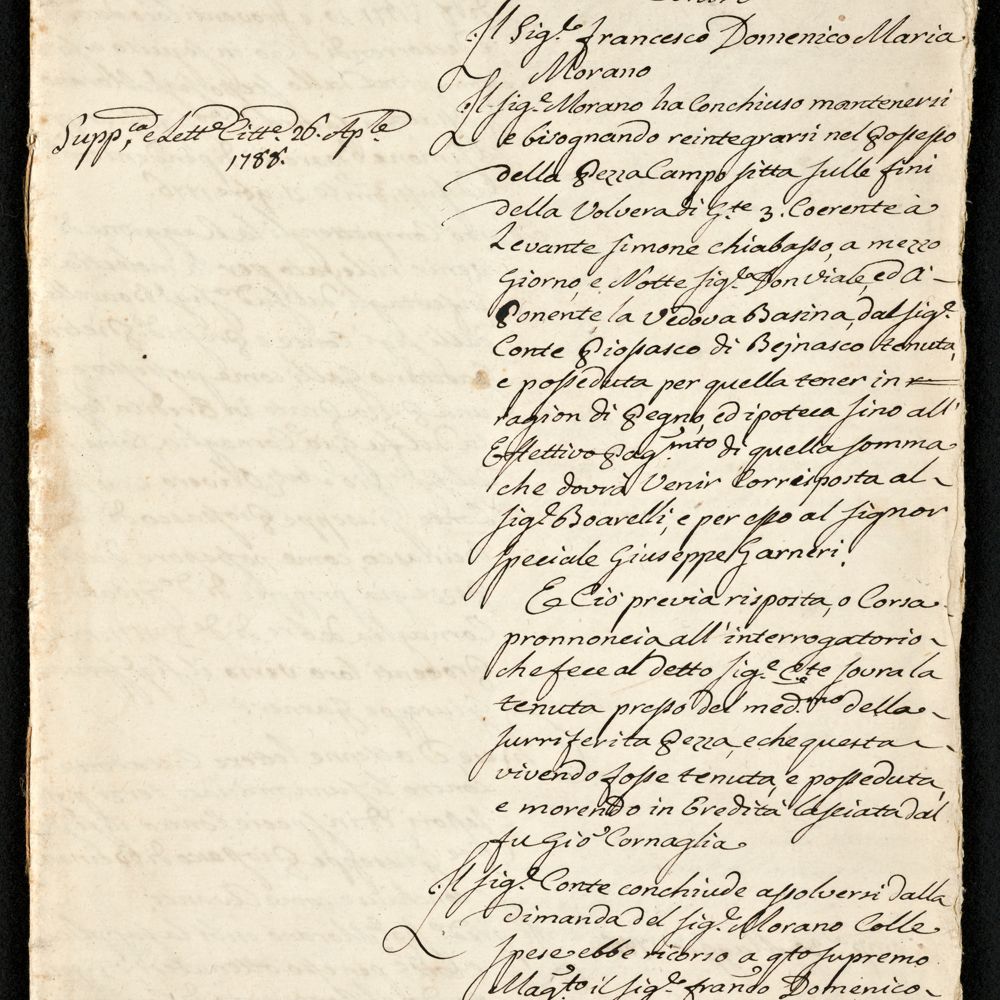 Contro
Il Sig.r Francesco Domenico Maria
Morano
Il Sig.r Morano ha Conchiuso mantenersi
Supp.ca, e Lett.e Citt.e 26. Ap.le
1788.
e bisognando reintegrarsi nel Possesso
della Pezza Campo sitta sulle fini
della Volvera di G.te 3. Coerente à
Levante Simone Chiabasso, a mezzo
Giorno, e Notte Sig.r Don Viale, ed A'
Ponente la Vedova Basina, dal Sig.r
Conte Piossasco di Bejnasco tenuta,
e posseduta per quella tener in
ragion di Pegno, ed ipoteca sino all'
Effettivo Pag.mto di quella somma
che dovrà Venir Corrisposta al
Sig.r Boarelli, e per esso al Signor
Speciale Giuseppe Garneri.
E Ciò previa risposta, o Corsa
pronnoncia all'interrogatorio
che fece al detto Sig.r C.te sovra la
tenuta presso del med.mo della
surriferita Pezza, e che questa
vivendo fosse tenuta, e posseduta,
e morendo in Eredità lasciata dal
fu Gio' Cornaglia.
Il Sig.r Conte conchiude assolversi dalla
dimanda del Sig.r Morano Colle
Spese ebbe ricorso a q.to supremo
Mag.to il Sig.r Fran.o Domenico